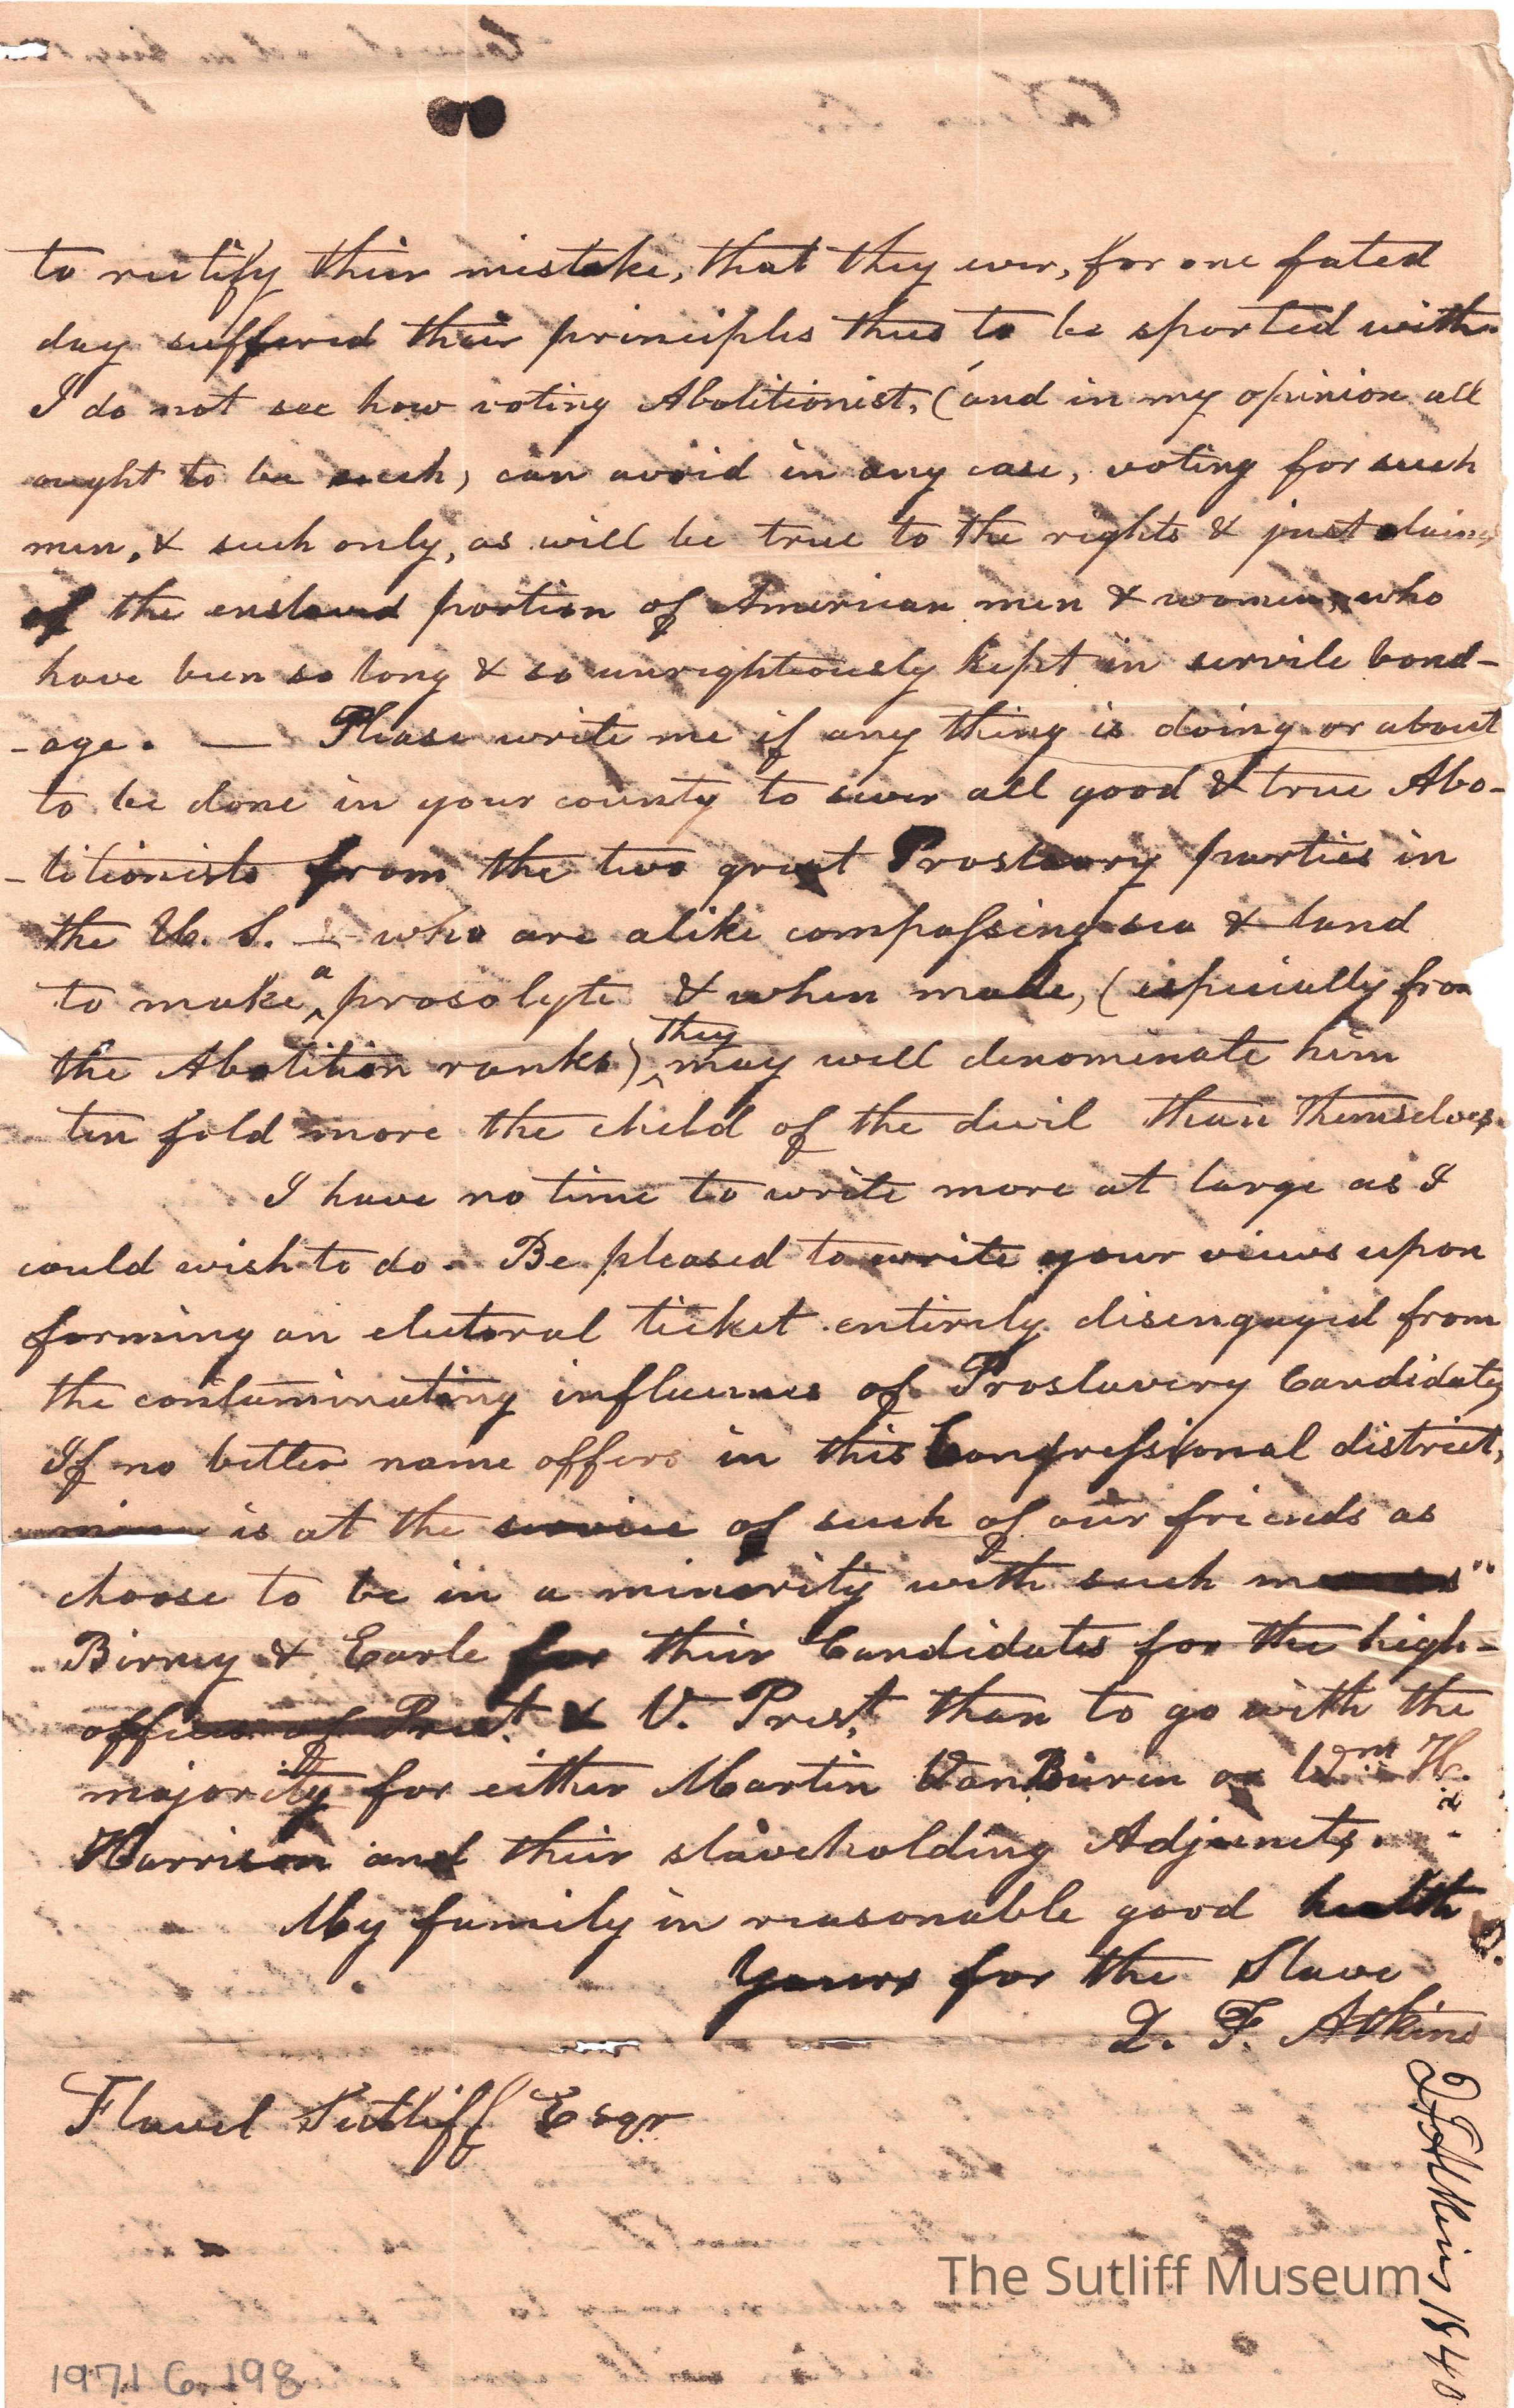 to rectify their mistake, that they ever, for one fated
day suffered their principles thus to be sported with.
I do not see how voting Abolitionist, (and in my opinion all
ought to be such) can avoid in any case, voting for such
men, & such only, as will be true to the rights & just claims
of the enslaved portion of American men & women, who
have been so long & so unrighteously kept in servile bond-
-age. — Please write me if any thing is doing or about
to be done in your county to sever all good & true Abo-
-litionists from the two great Proslavery parties in
the U. S. — who are alike compassing sea & land
to make a prosolyte & when made, (especially from
the Abolition ranks) they may well denominate him
ten fold more the child of the devil than themselves.
I have no time to write more at large as I
could wish to do - Be pleased to write your views upon
forming an electoral ticket entirely disengaged from
the contaminating influences of Proslavery Candidates
If no better name offers in this Congressional district,
mine is at the service of such of our friends as
choose to be in a minority with such
Birney & Earle for their Candidates for the high-
offices of Prest. & V. Prest. than to go with the
majority for either Martin VanBuren or Wm H.
Harrison and their slaveholding Adjuncts.
My family in reasonable good health
Yours for the Slave
Q. F. Atkins
Flavel Sutliff Esqr
Q F Atkins 1840
The Sutliff Museum
1971.6.198